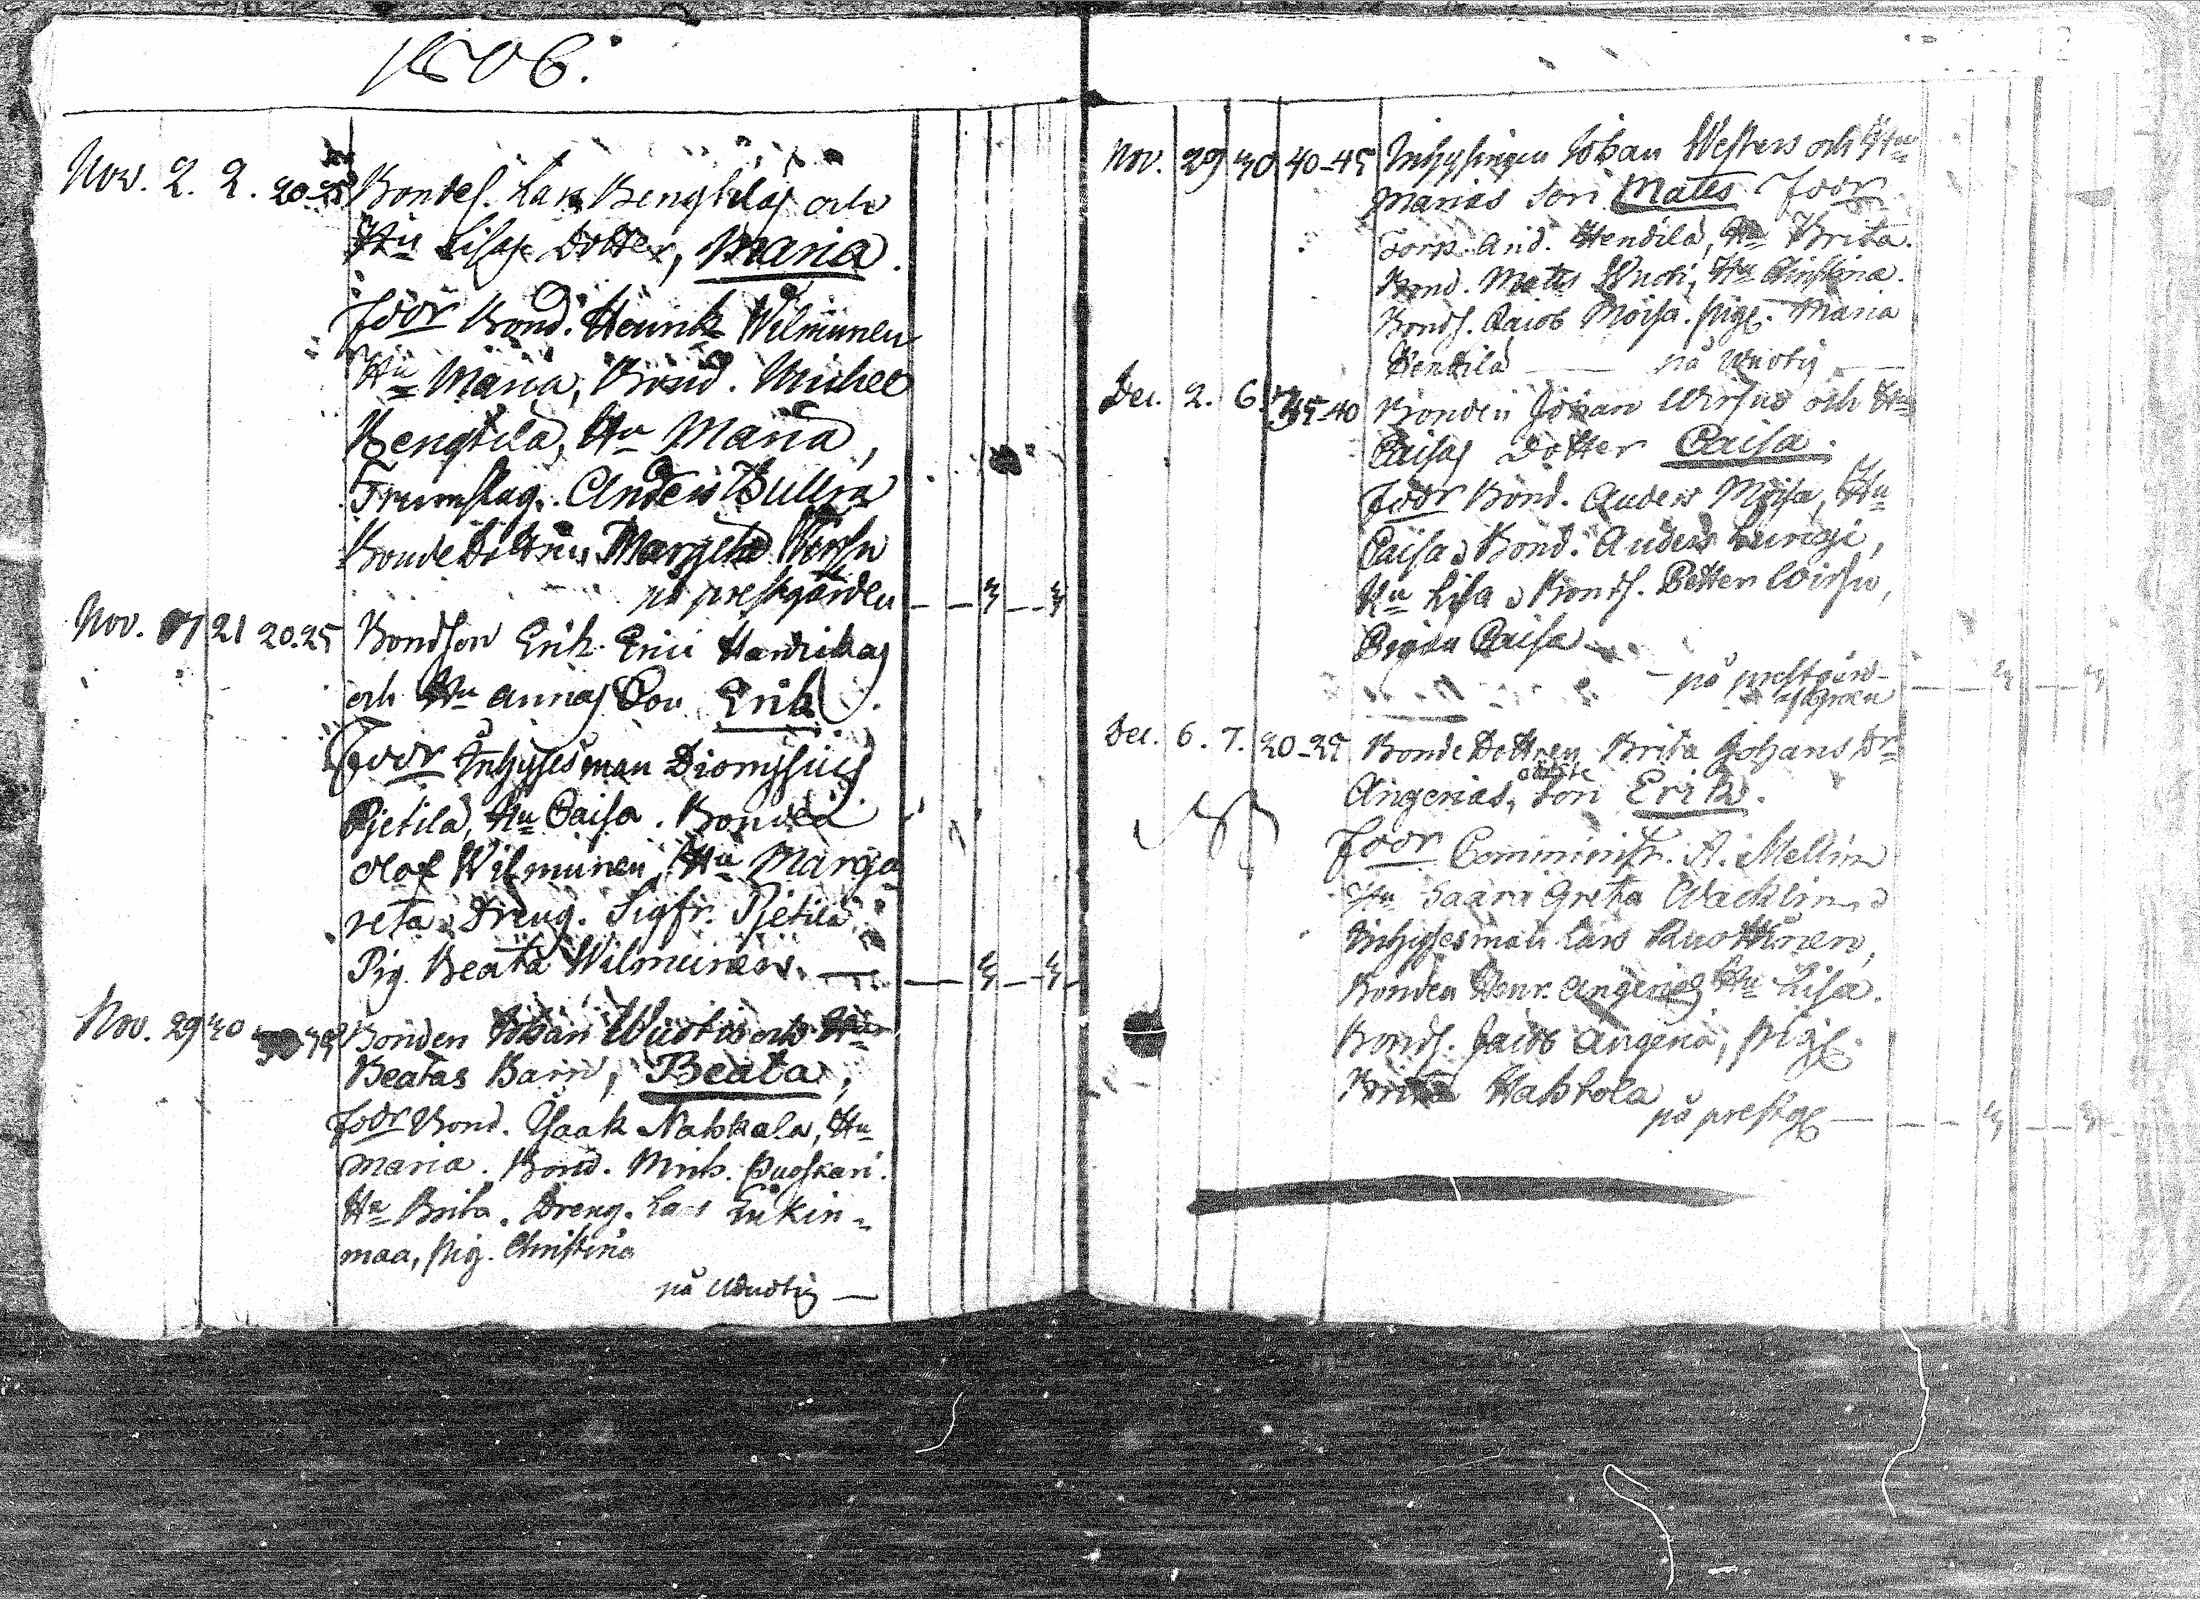 1806.
Nov. 2. 2. 20-25 Bondes. Lars Bengtilas och
Hu Lisas Dotter, Maria.
Foor Bond. Henrik Wilmunen
Hu Maria, Bond. Michel
Bengtila, Hu Maria,
Trumslag. Anders Bullra
BondeDottren Margeta Wirsu
på prestgården
Nov. 21 20.25 Bondson Erik Erici Handikas
och Hu Annas Son Erik.
Foor Inhysesman Dionysius
Pjetila, Hu Caisa. Bonden
Olof Wilmunen, Hu Marga
reta. Dreng. Sigfr. Pjetila
Pig. Beata Wilmunen.
Nov. 29 30 Bonden Johan Wuotis och Hu
Beatas Barn, Beata,
foor Bond. Isaak Nahkala, Hu
Maria. Bond. Mich. Puoskari.
Hu Brita. Dreng. Lars
maa, pig. Christina
på Wuotis
12
Nov. 29 30 40-45 Inhysingen Johan Westers och Hu
Marias Son Mats Foor
Torp. And. Hendila, Hu Brita.
Bond. Mats Wuoti, Hu Christina.
Bonds. Jacob Moisa. pig. Maria
Hendila på Wuotis
Dec. 2. 6. 35-40 Bonden Johan Wirsus och Hu
Caisas Dotter Caisa.
foor Bond. Anders Moisa, Hu
Caisa. Bond. Anders Luringi,
Hu Lisa. Bonds. Petter Wirsu,
Pigan Caisa
på prestgård-
Dec. 6. 7. 20-25 BondeDottren Brita Johans Dr
Angerias, oäkte Son Erik.
foor Comminist. A. Mellin
Hu Saara Greta Wacklin
Inhysesman Lars Ruottinen,
Bonden Henr. Angerias Hu Lisa.
Bonds. Jacob Angeria, pig.
Brita Hahtola
på prestg.